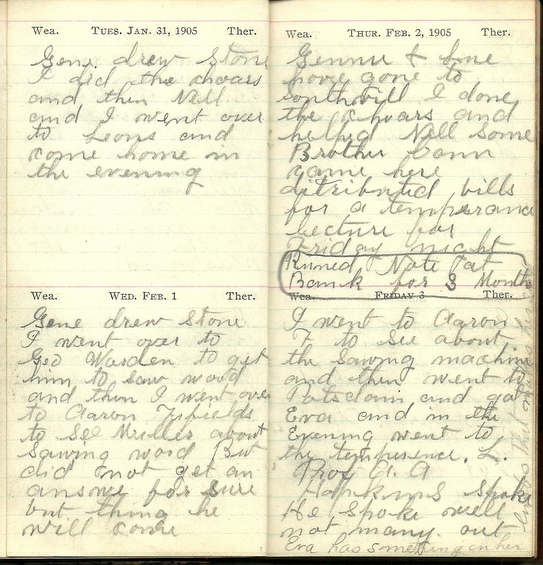 Wea. TUES. JAN. 31, 1905 Ther.
Gene drew Stone
I did the choars
and then Nell
and I went over
to Leons and
come home in
the evening
Wea. WED. FEB. 1 Ther.
Gene drew Stone
I went over to
Geo Warden to get
him to saw wood
and then I went over
to Aaron Fifields
to See Miller about
Sawing wood But
did not get an
answe for sure
but thing he
will come
Wea. THUR. FEB. 2, 1905 Ther.
Gennie &
have gone to
I done
the choars and
helped Nell Some
Brother
came here
ditributed bills
for a temperance
lecture for
Friday night
Runed Note at
Bank for 3 Months
Wea. FRIDAY 3 Ther.
I went to Aaron
F to See about
the Sawing machine
and then went to
Potsdam and got
Eva and in the
Evening went to
the temperence. L.
Prof A. A
Hopkins Spoke
He Spoke well
not many out
Eva has something in her